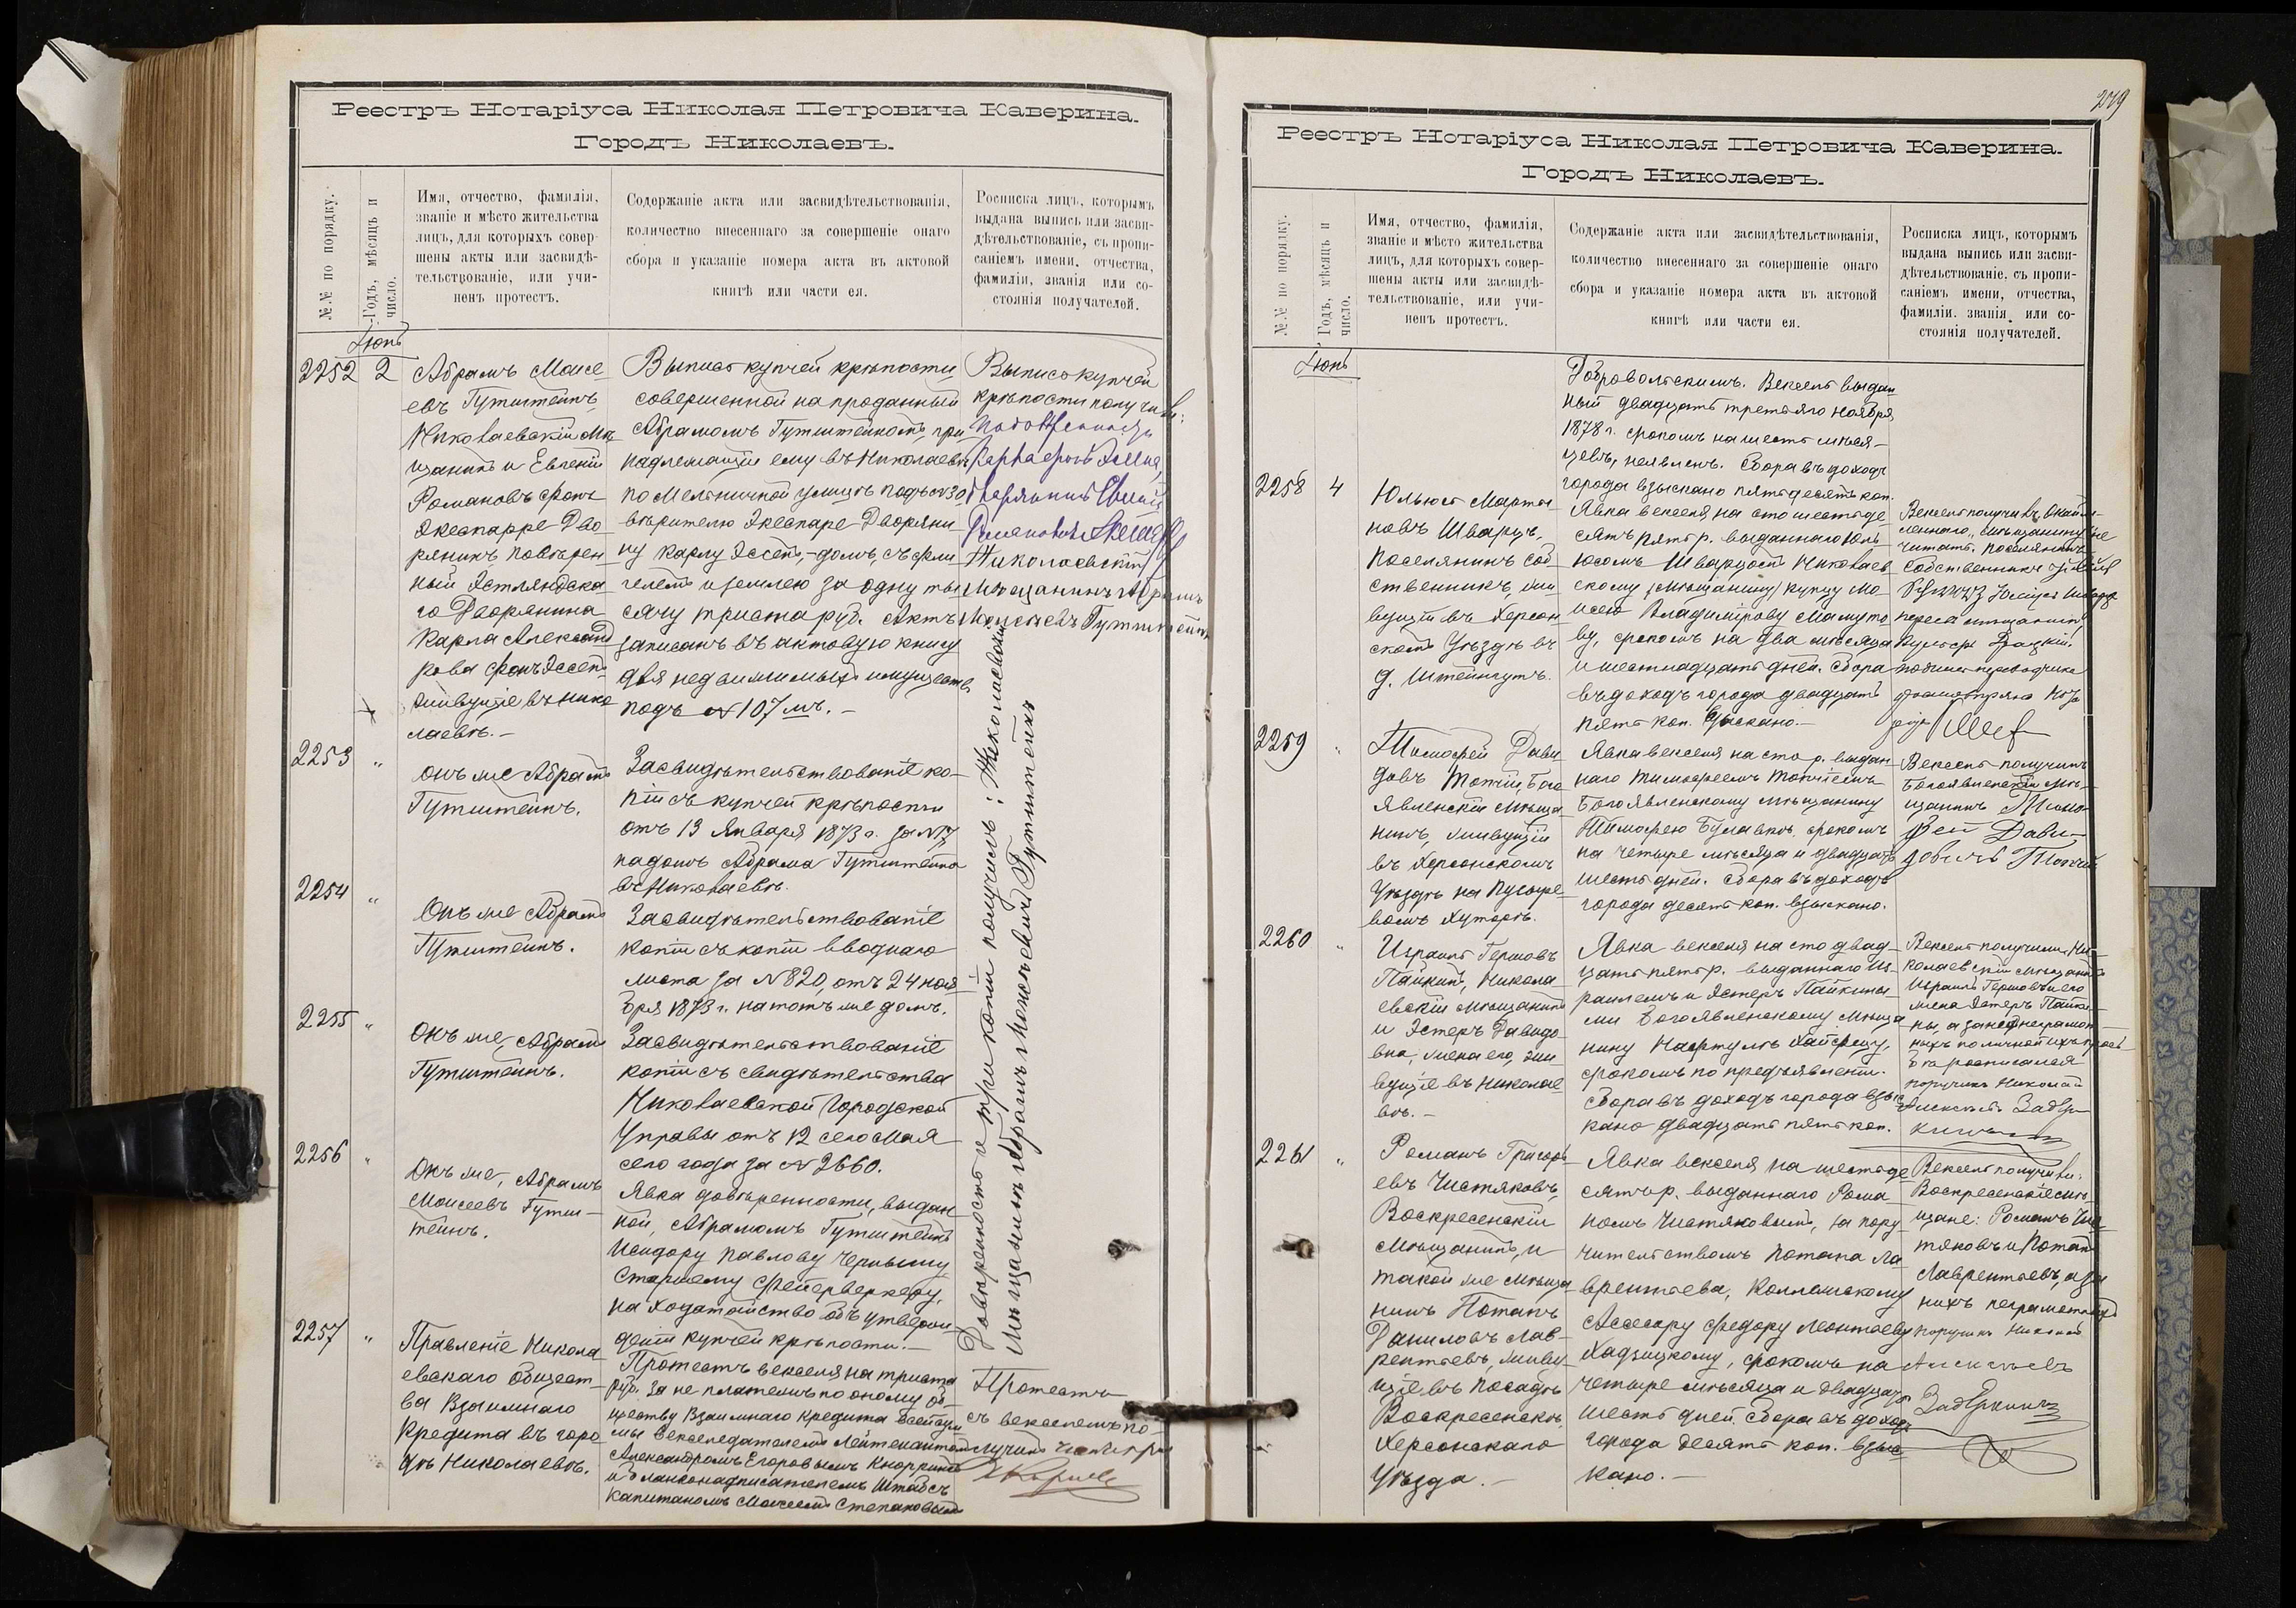 Реестръ Нотаріуса Николая Петровича Каверина.
Городъ Николаевъ.
№№ по порядку.
Годъ, мѣсяцъ и число.
Имя, отчество, фамилія,
званіе и мѣсто жительства
лицъ, для которыхъ совер-
шены акты или засвидѣ-
тельствованіе, или учи-
ненъ протестъ.
Содержаніе акта или засвидѣтельствованія,
количество внесеннаго за совершеніе онаго
сбора и указаніе номера акта въ актовой
книгѣ или части ея.
Росписка лицъ, которымъ
выдана выпись или засви-
дѣтельствованіе, съ пропи-
саніемъ имени, отчества,
фамиліи, званія или со-
стоянія получателей.
Іюнь
2252 2
Абрамъ Моисе-
евъ Гутштейнъ,
Николаевскій Мѣ-
щанинъ и Евгеній
Романовъ фонъ
Экеспарре Дво-
рянинъ повѣрен-
ный Эстляндска-
го Дворянина
Карла Александ-
рова фонъ Эссенъ
живущіе въ Нико-
лаевѣ.-
Выпись купчей крѣпости,
совершенной на проданный
Абрамомъ Гутштейномъ, при-
надлежащій ему въ Николаевѣ
по Мельничной улицѣ подъ №30
вѣрителю Экеспаре Дворяни-
ну Карлу Эссенъ,-домъ, съ фли-
гелемъ и землею за одну ты-
сячу триста руб. Актъ
записанъ въ актовую книгу
для недвижимыхъ имуществъ
подъ №107мъ.-
Выпись купчей
крѣпости получили:
Дворянинъ Евгеній
Николаевскій
Мѣщанинъ Абрамъ
Моисѣевъ Гутштейнъ
2253 "
Онъ же Абрамъ
Гутштейнъ.
Засвидѣтельствованіе ко-
піи съ купчей крѣпости
отъ 13 Января 1873 г. за №17,
на домъ Абрама Гутштейна
въ Николаевѣ.
2254 "
Онъ же Абрамъ
Гутштейнъ.
Засвидѣтельствованіе
копіи съ копіи вводнаго
листа за №820, отъ 24 ноя-
бря 1873 г. на тотъ же домъ.
2255 "
Онъ же, Абрамъ
Гутштейнъ.
Засвидѣтельствованіе
копіи съ свидѣтельства
Николаевской Городской
Управы отъ 12 сего Мая
сего года за № 2660.
2256 "
Онъ же, Абрамъ
Моисеевъ Гутш-
тейнъ.
Явка довѣренности, выдан-
ной, Абрамомъ Гутштейнъ
Исидору Павлову Чернышу
Старшему Фейерверкеру,
на ходатайство объ утверж-
деніи купчей крѣпости.-
Довѣренность и три копіи получилъ: Николаевскій
Мѣщанинъ Абрамъ Моисѣевичъ Гутштейнъ
2257 "
Правленіе Никола-
евскаго Общест-
ва Взаимнаго
Кредита въ горо-
дѣ Николаевѣ.
Протестъ векселя на триста
руб. за не платежъ по оному об-
ществу Взаимнаго Кредита
векселедателемъ Лейтенантомъ
Александромъ Егоровымъ Кноррингъ
и бланконадписателемъ Штабсъ
Капитаномъ Моисеемъ Степановымъ
Протестъ
съ векселемъ по-
лучилъ
279
Реестръ Нотаріуса Николая Петровича Каверина.
Городъ Николаевъ.
№№ по порядку.
Годъ, мѣсяцъ и число.
Имя, отчество, фамилія,
званіе и мѣсто жительства
лицъ, для которыхъ совер-
шены акты или засвидѣ-
тельствованіе, или учи-
ненъ протестъ.
Содержаніе акта или засвидѣтельствованія,
количество внесеннаго за совершеніе онаго
сбора и указаніе номера акта въ актовой
книгѣ или части ея.
Росписка лицъ, которымъ
выдана выпись или засви-
дѣтельствованіе, съ пропи-
саніемъ имени, отчества,
фамиліи, званія или со-
стоянія получателей.
Іюнь
Добровольскимъ. Вексель выдан-
ный двадцать третьяго ноября
1878 г. срокомъ на шесть мѣся-
цевъ, неявленъ. Сбора въ доходъ
города взыскано пятьдесятъ коп.
2258 4
Юльюсъ Марты-
новъ Шварцъ,
поселянинъ соб-
ственникъ, жи-
вущій въ Херсон-
скомъ Уѣздѣ въ
д. Штейнгутъ.
Явка векселя на сто шестьде-
сятъ пять р. выданнаго Юль-
юсомъ Шварцомъ Николаев-
скому (Мѣщанину) купцу Мо-
исею Владимірову Мамуто-
ву, срокомъ на два мѣсяца
и шестнадцать дней. Сбора
въ доходъ города двадцать
пять коп. взыскано.-
Вексель получилъ
читать. поселянинъ
собственникъ
2259 "
Тимофей Дави-
довъ Топчій, Бого-
явленскій Мѣща-
нинъ, живущій
въ Херсонскомъ
Уѣздѣ на Пузыре-
вомъ хуторѣ.
Явка векселя на сто р. выдан-
наго Тимофеемъ Топчіемъ
Богоявленскому мѣщанину
Тимофею срокомъ
на четыре мѣсяца и двадцать
шесть дней. Сбора въ доходъ
города десять коп. взыскано.
Вексель получилъ
Богоявленскій мѣ-
щанинъ Тимо-
фей Дави-
довичъ Топчій
2260 "
Израиль Гершовъ
Пайкинъ, Никола-
евскій мѣщанинъ
и Эстеръ Давидо-
вна, жена его, жи-
вущіе въ Николае-
вѣ.-
Явка векселя на сто двад-
цать пять р. выданнаго Из-
раилемъ и Эстеръ Пайкины-
ми Богоявленскому Мѣща-
нину Нафтулѣ
срокомъ по предъявленіи.
Сбора въ доходъ города взыс-
кано двадцать пять коп.
Вексель получили, Ни-
колаевскій мѣщанинъ
Израиль Гершовъ и его
жена Эстеръ Пайки-
ны, а за нихъ неграмот-
ныхъ по личной ихъ прось-
бѣ росписался
поручикъ Николай
2261 "
Романъ Григорь-
евъ Чистяковъ,
Воскресенскій
Мѣщанинъ, и
такой же мѣща-
нинъ Потапъ
Даниловъ Лав-
рентьевъ, живу-
щіе въ посадѣ
Воскресенскѣ,
Херсонскаго
Уѣзда.-
Явка векселя на шестьде-
сятъ р. выданнаго Рома-
номъ Чистяковымъ, за пору-
чительствомъ Потапа Ла-
врентьева, Коллежскому
Ассесору Федору Леонтьеву
Хадзицкому, срокомъ на
четыре мѣсяца и двадцать
шесть дней. Сбора въ доходъ
города десять коп. взыс-
кано.-
Вексель получили:
Воскресенскіе мѣ-
щане: Романъ Чис-
тяковъ и Потапъ
Лаврентьевъ, а за
нихъ неграмотныхъ
поручикъ Николай